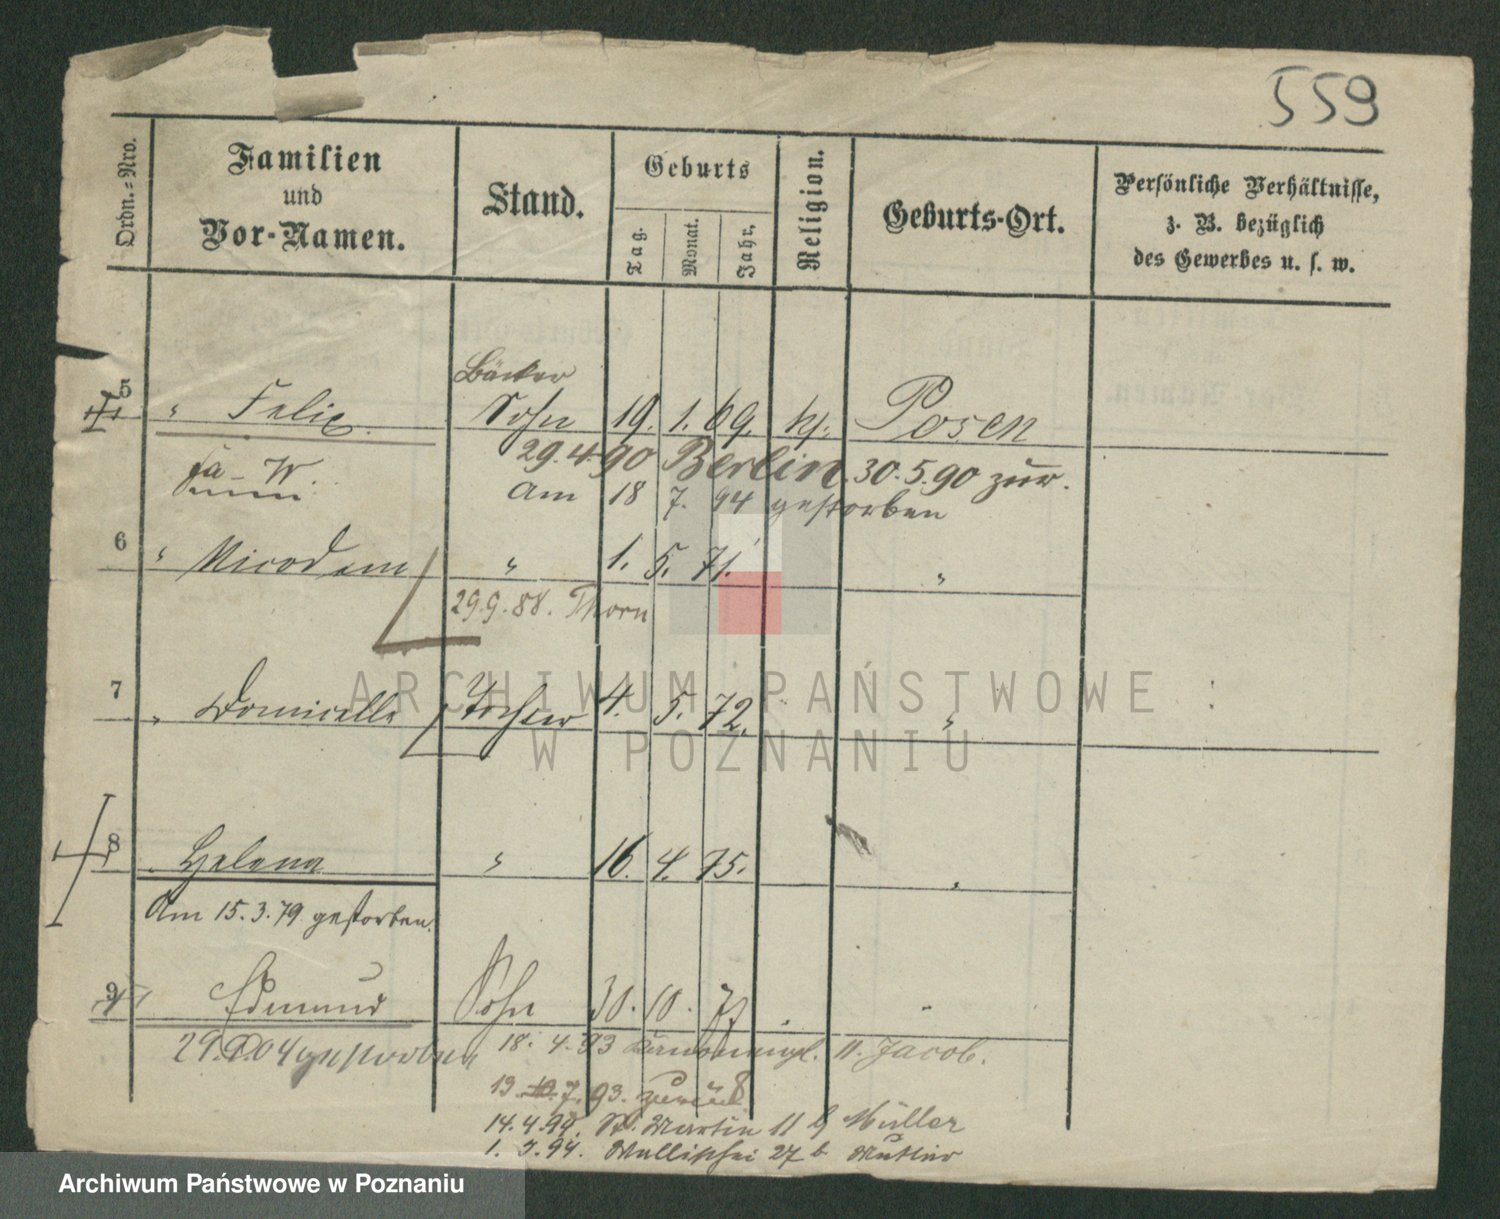 559
Ordn.=Nro.
Familien
und
Vor-Namen.
Stand.
Geburts
Tag.
Monat.
Jahr.
Religion.
Geburts-Ort.
Persönliche Verhältnisse,
z. B. bezüglich
des Gewerbes u. s. w.
Bäcker
5 " Felix. Sohn 19. 1. 69. kj. Posen
29.4.90 Berlin. 30.5.90 zur.
Am 18 7. 94 gestorben
6 " Nicodem " 1. 5. 71. "
29.9.88. Thorn
7 " Domicella Tochter 4. 5. 72. "
8 " Helena " 16. 4. 75. "
Am 15.3.79 gestorben.
9 Edmund Sohn 30. 10. 77 "
gestorben 18. 4. 93 11. Jacob.
13 7. 93. zurück
14.4.94. St. Martin 11 b Müller
1. 7. 94. Wallischei 27 b Mutter
ARCHIWUM PAŃSTWOWE
W POZNANIU
Archiwum Państwowe w Poznaniu